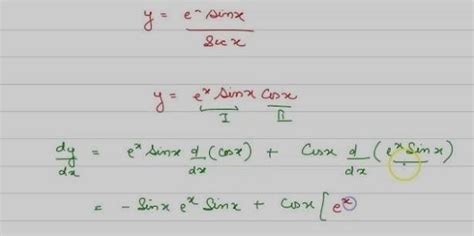 y = e^x sinx / Sec x
y = e^x sinx Cosx
I II
dy/dx = e^x sinx d/dx (cosx) + Cosx d/dx (e^x Sinx)
= - Sinx e^x Sinx + Cosx [ e^x